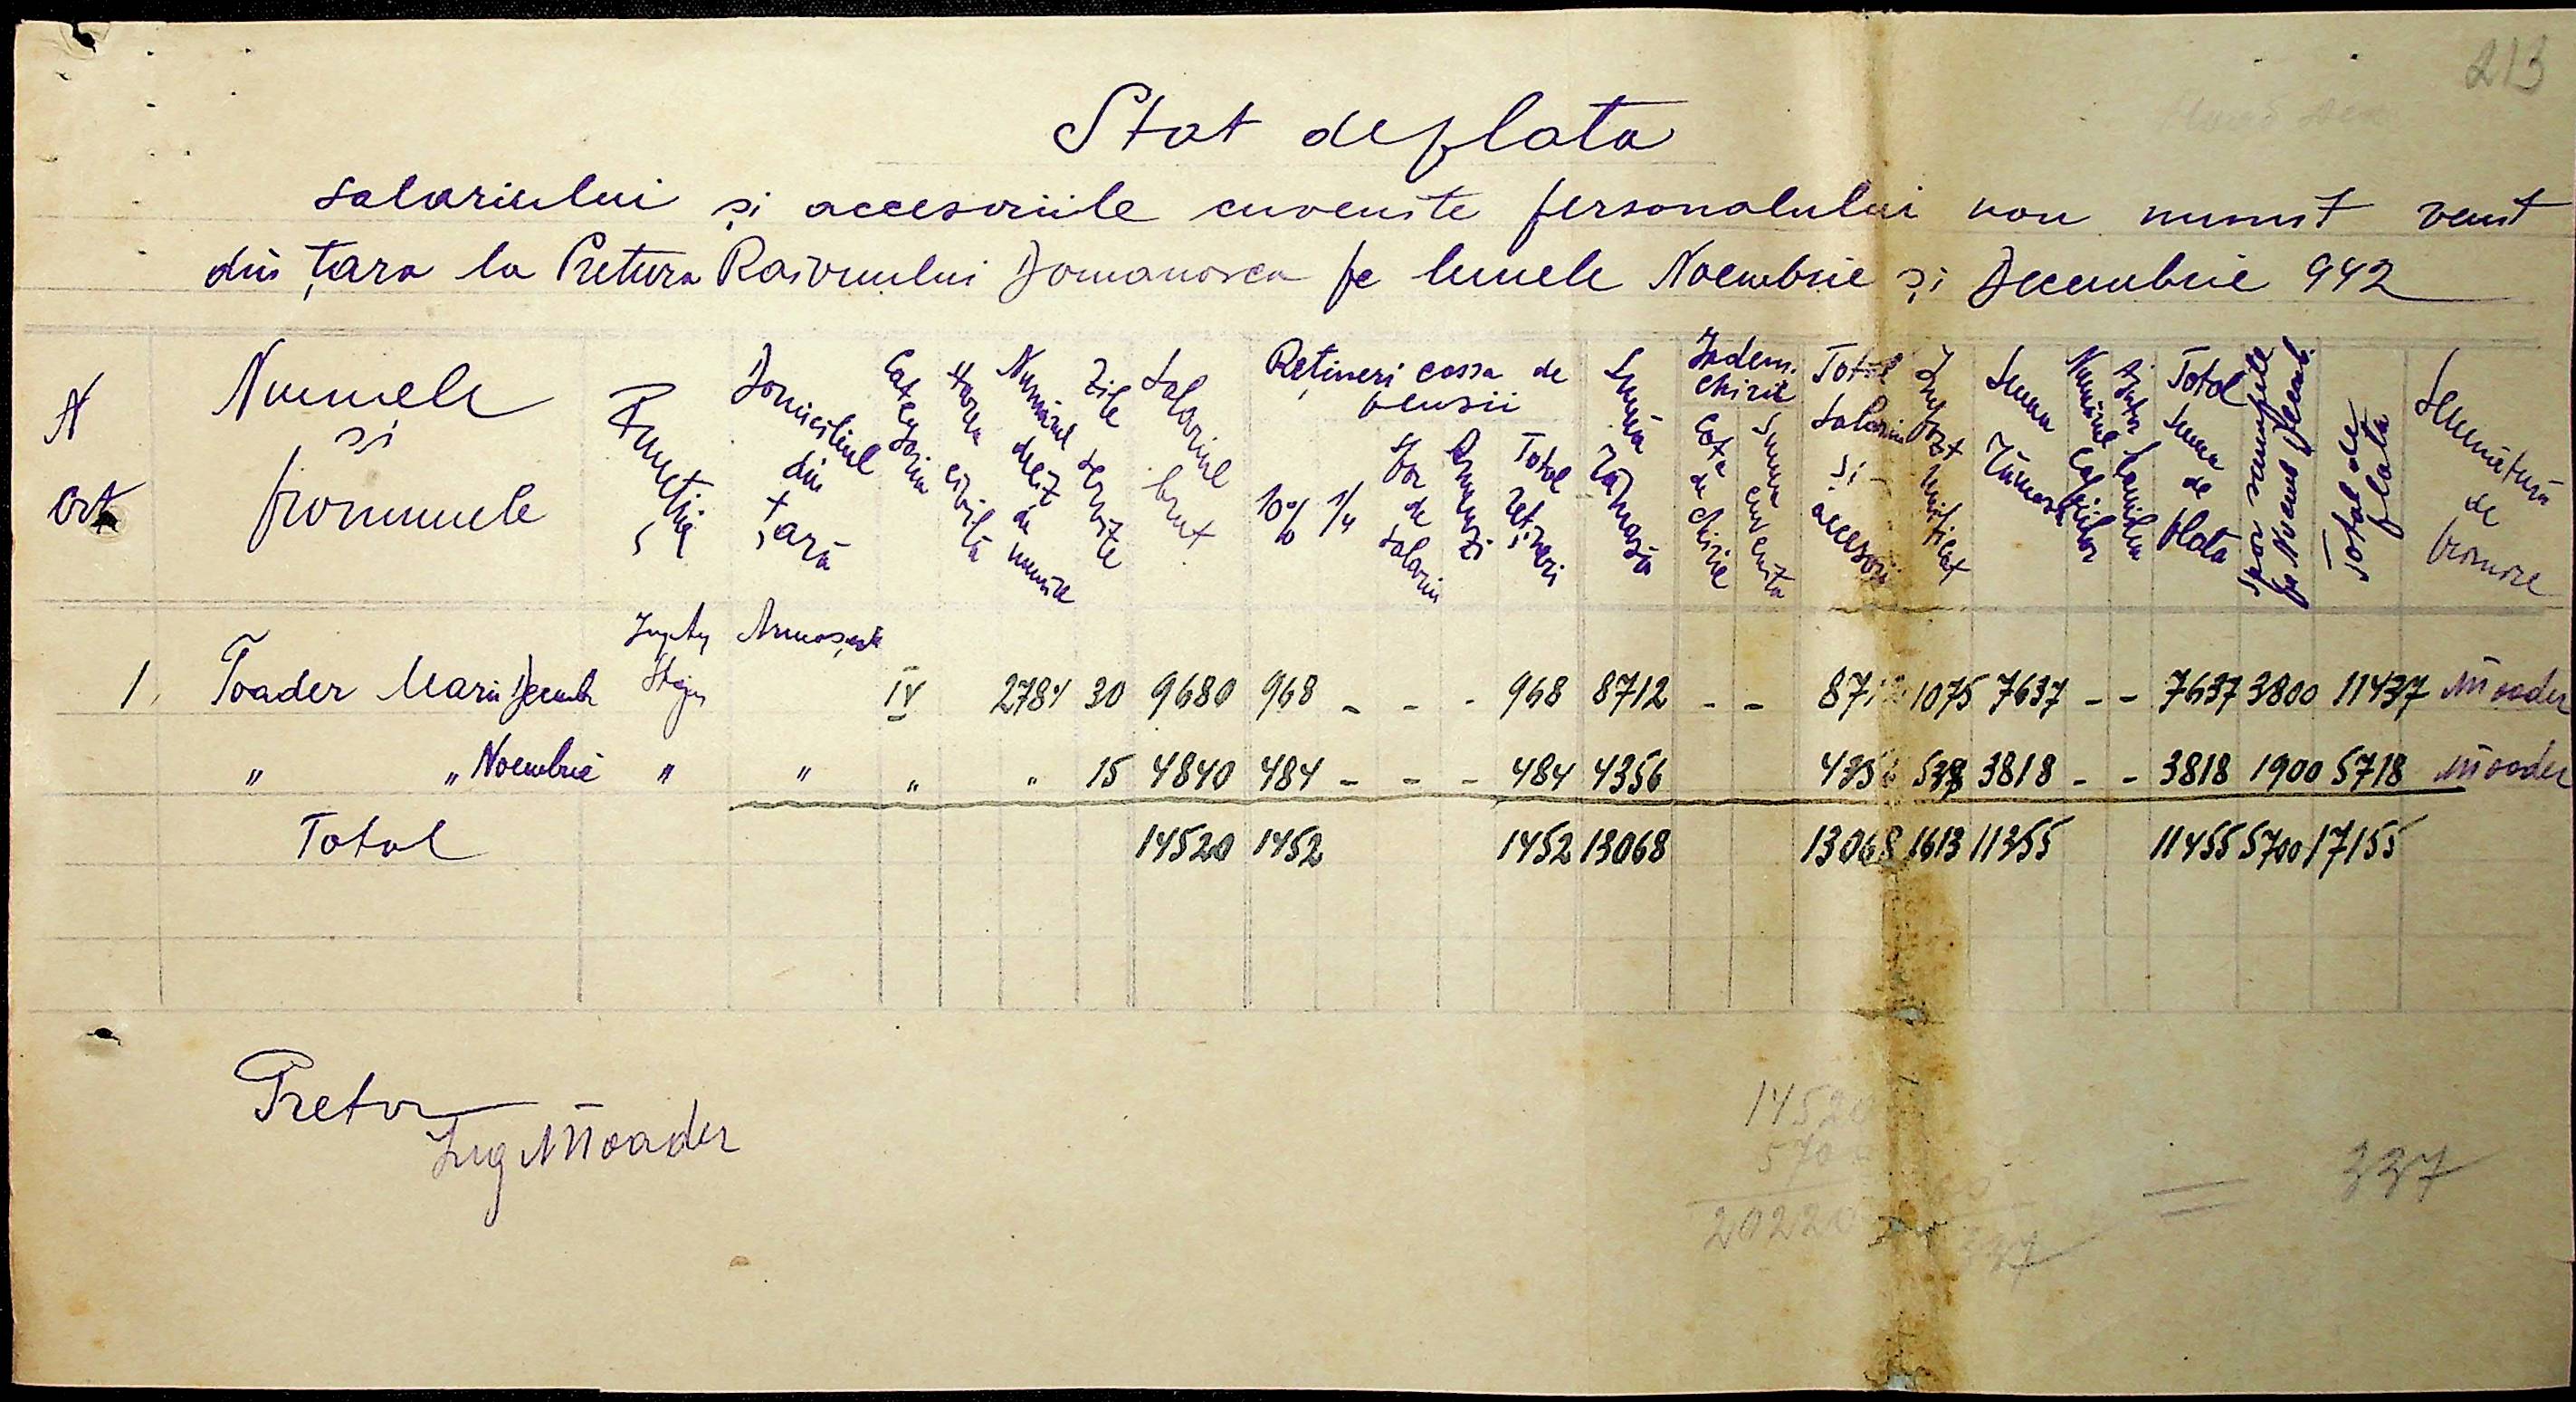 213
Stat de plata
salariului și accesoriile cuvenite personalului nou numit venit
din țara la Pretura Raionului Domanovca pe lunele Noembrie și Decembrie 942
N crt
Numele și pronumele
Funcția
Domiciliul din țară
Categoria
Starea civilă
Numărul deciz de numire
Zile servite
Salariul brut
Rețineri cassa de pensii
10% 1/4 Spor de salariu
Total rețineri
Suma rămasă
Indem. chirie
Cota de chirie
Suma cuvenita
Total salariu și accesorii
Impozit unificat
Suma rămasă
Numărul copiilor
Ajutor familiar
Total suma de plata
Spor scumpete pe Noemb Decemb.
Total de plata
Semnătura de primire
1. Toader Marin Decemb IV 2784 30 9680 968 - - - 968 8712 - - 8712 1075 7637 - - 7637 3800 11437 MToader
" " Noembrie " " " " 15 4840 484 - - - 484 4356 4356 538 3818 - - 3818 1900 5718 MToader
Total 14520 1452 1452 13068 13068 1613 11355 11455 5700 17155
Pretor
Ing MToader
14520
5700
20220
337
= 337